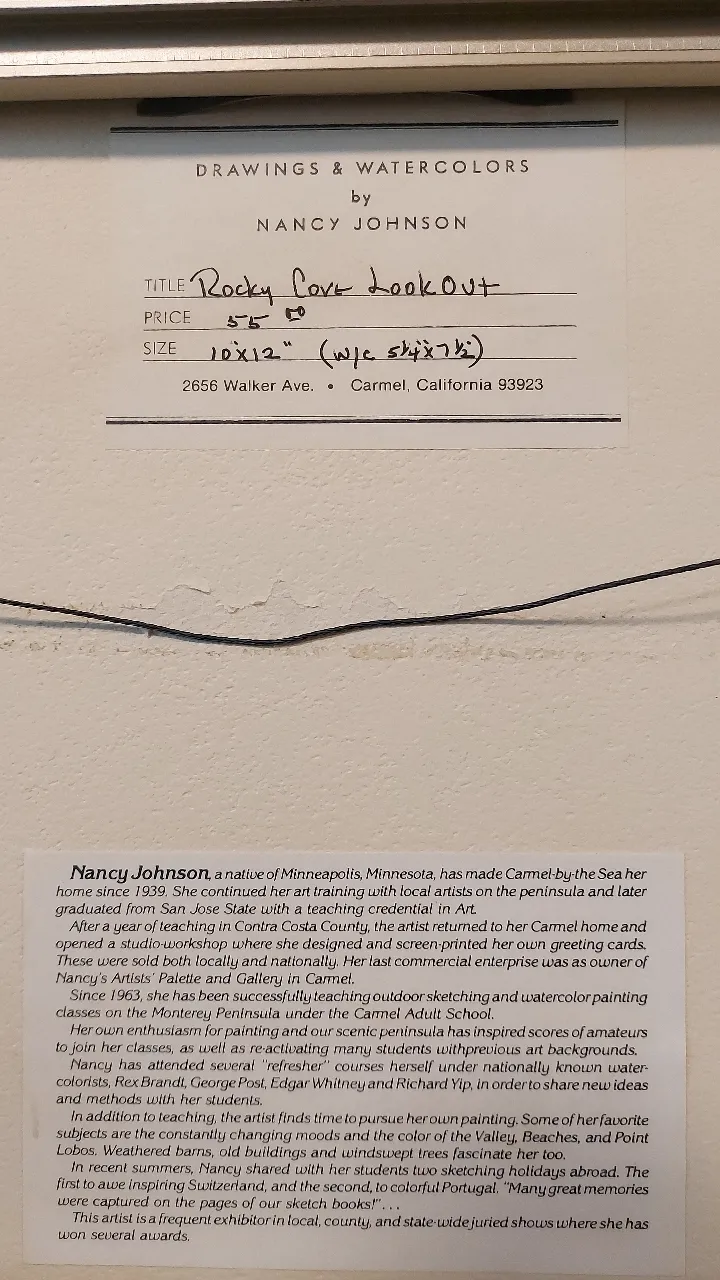 DRAWINGS & WATERCOLORS
by
NANCY JOHNSON
TITLE Rocky Cove Look Out
PRICE 55 00
SIZE 10"x12" (w/c 5¼"x7½")
2656 Walker Ave. • Carmel, California 93923
Nancy Johnson, a native of Minneapolis, Minnesota, has made Carmel-by-the Sea her
home since 1939. She continued her art training with local artists on the peninsula and later
graduated from San Jose State with a teaching credential in Art.
After a year of teaching in Contra Costa County, the artist returned to her Carmel home and
opened a studio-workshop where she designed and screen-printed her own greeting cards.
These were sold both locally and nationally. Her last commercial enterprise was as owner of
Nancy's Artists' Palette and Gallery in Carmel.
Since 1963, she has been successfully teaching outdoor sketching and watercolor painting
classes on the Monterey Peninsula under the Carmel Adult School.
Her own enthusiasm for painting and our scenic peninsula has inspired scores of amateurs
to join her classes, as well as re-activating many students withprevious art backgrounds.
Nancy has attended several "refresher" courses herself under nationally known water-
colorists, Rex Brandt, George Post, Edgar Whitney and Richard Yip, in order to share new ideas
and methods with her students.
In addition to teaching, the artist finds time to pursue her own painting. Some of her favorite
subjects are the constantly changing moods and the color of the Valley, Beaches, and Point
Lobos. Weathered barns, old buildings and windswept trees fascinate her too.
In recent summers, Nancy shared with her students two sketching holidays abroad. The
first to awe inspiring Switzerland, and the second, to colorful Portugal. "Many great memories
were captured on the pages of our sketch books!"...
This artist is a frequent exhibitor in local, county, and state-wide juried shows where she has
won several awards.